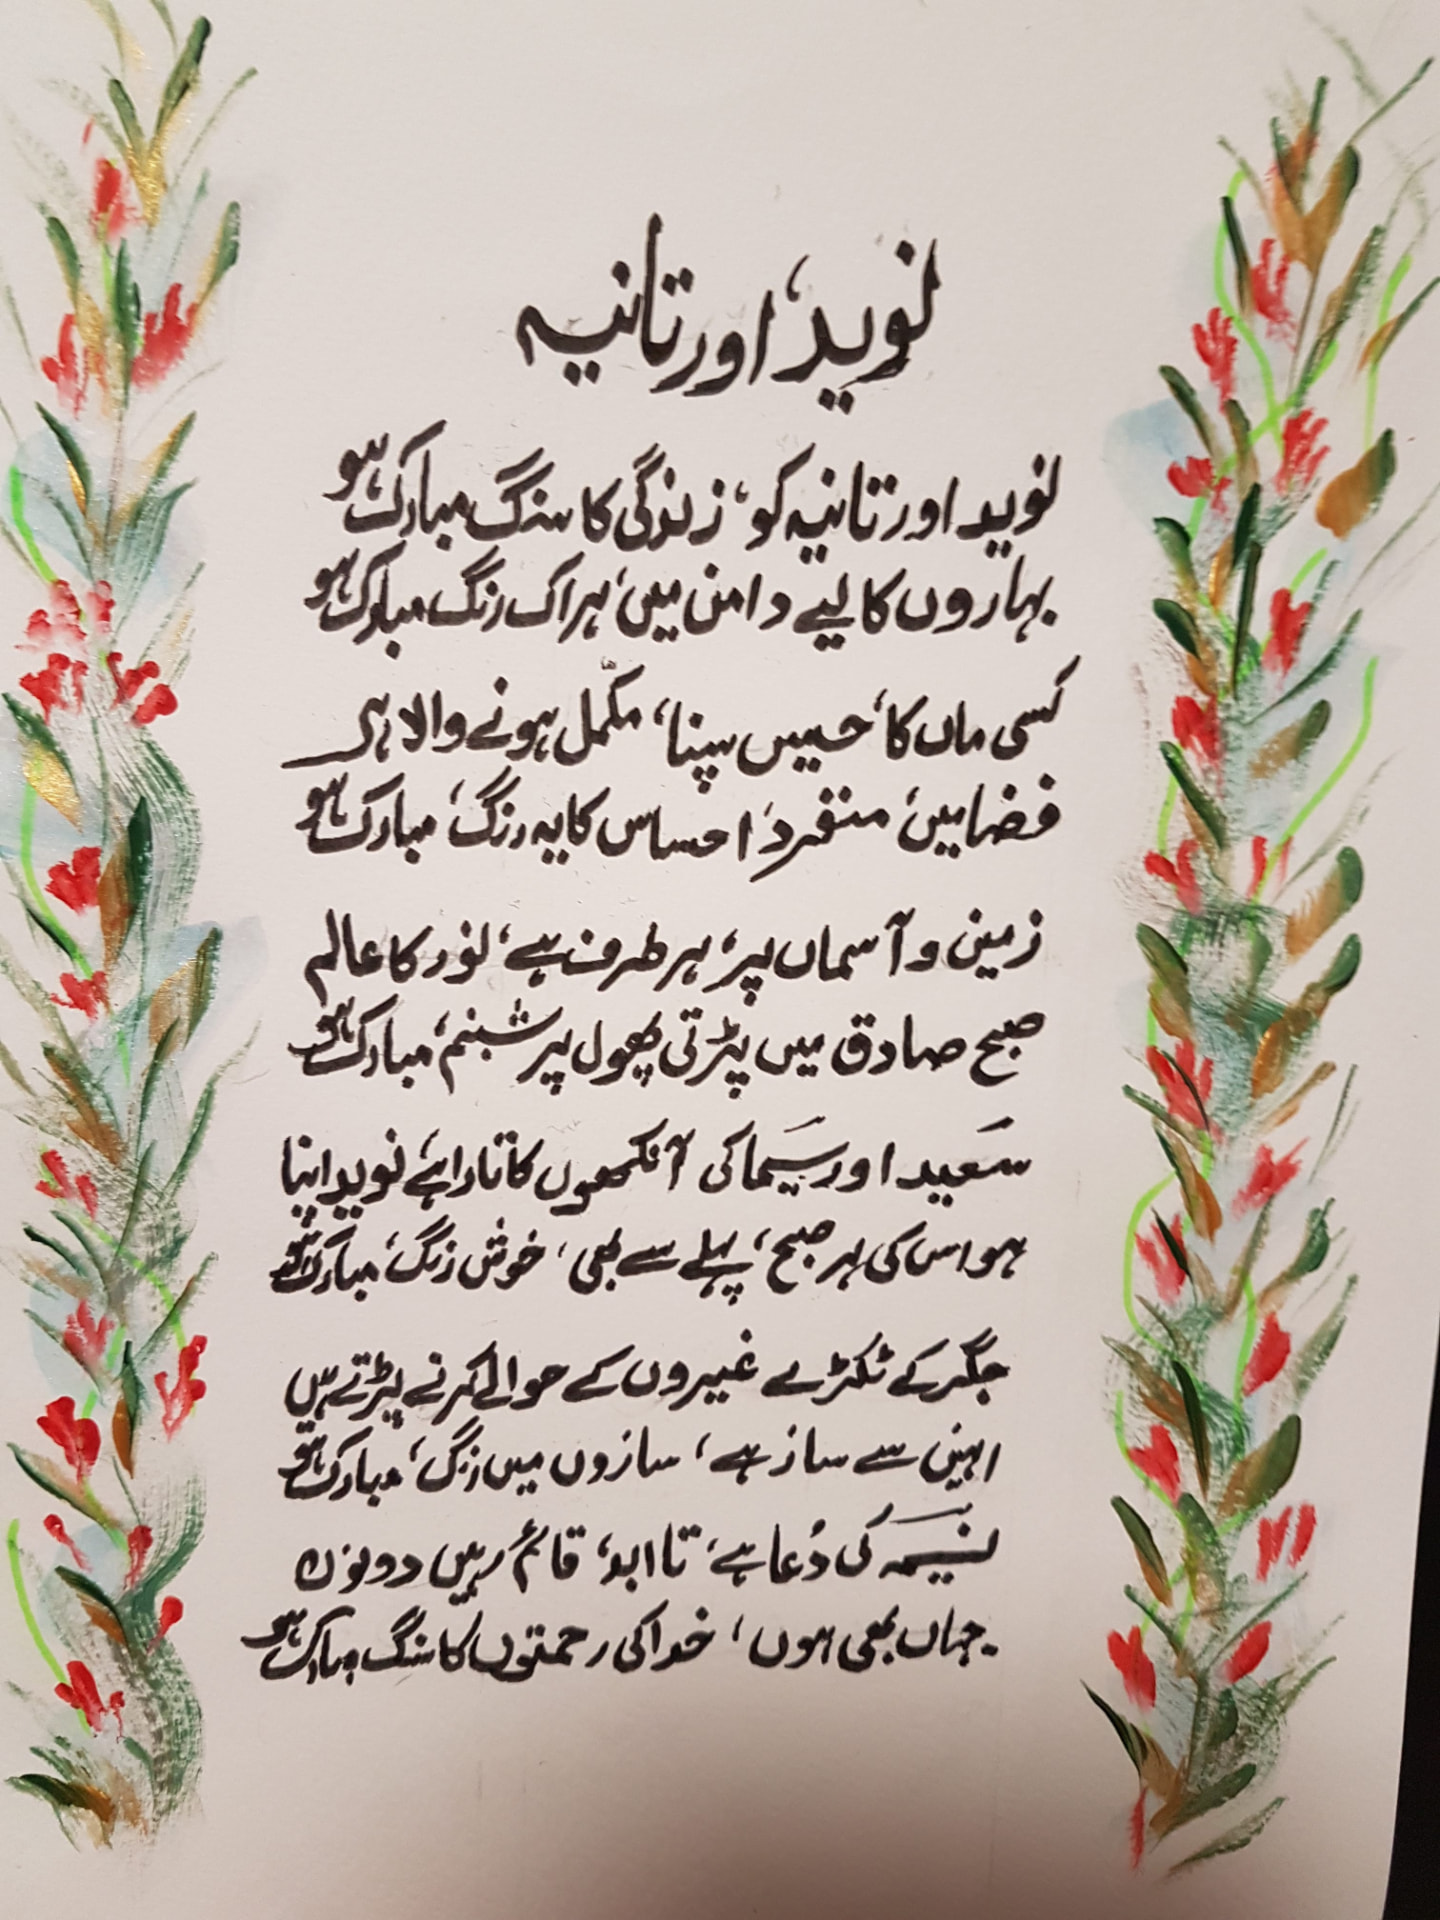 نوید، اور تانیہ
نوید اور تانیہ کو، زندگی کا سنگ مبارک ہو
بہاروں کا لیے دامن میں، ہر اک رنگ مبارک ہو
کسی ماں کا، حسیں سپنا، مکمّل ہونے والا ہے
فضا میں، منفرد، احساس کا یہ رنگ، مبارک ہو
زمین و آسماں پر، ہر طرف ہے، نور کا عالم
صبح صادق میں پڑتی پھول پر شبنم، مبارک ہو
سعید اور سیما کی آنکھوں کا تارا ہے، نوید اپنا
ہو اس کی ہر صبح، پہلے سے بھی، خوش رنگ، مبارک ہو
جگر کے ٹکڑے غیروں کے حوالے کرنے پڑتے ہیں
انہیں سے ساز ہے، سازوں میں رنگ، مبارک ہو
نسیمہ کی دُعا ہے، تا ابد، قائم رہیں دونوں
جہاں بھی ہوں، خدا کی رحمتوں کا سنگ مبارک ہو